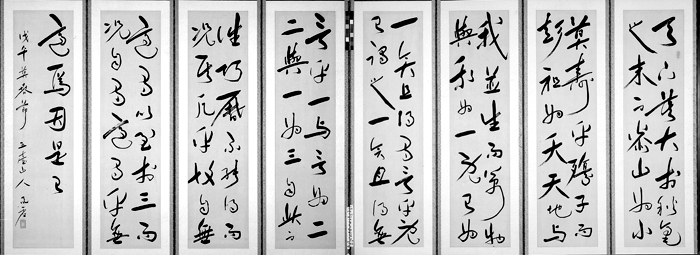 天下莫大於秋毫
之末而泰山為小
莫壽乎殤子而
彭祖為夭天地與
我並生而萬物
與我為一既已為
一矣且得有言乎既
已謂之一矣且得無
言乎一與言為二
二與一為三自此以
往巧曆不能得而
況其凡乎故自無
適有以至於三而
況自有適有乎無
適焉因是已
戊午 山人